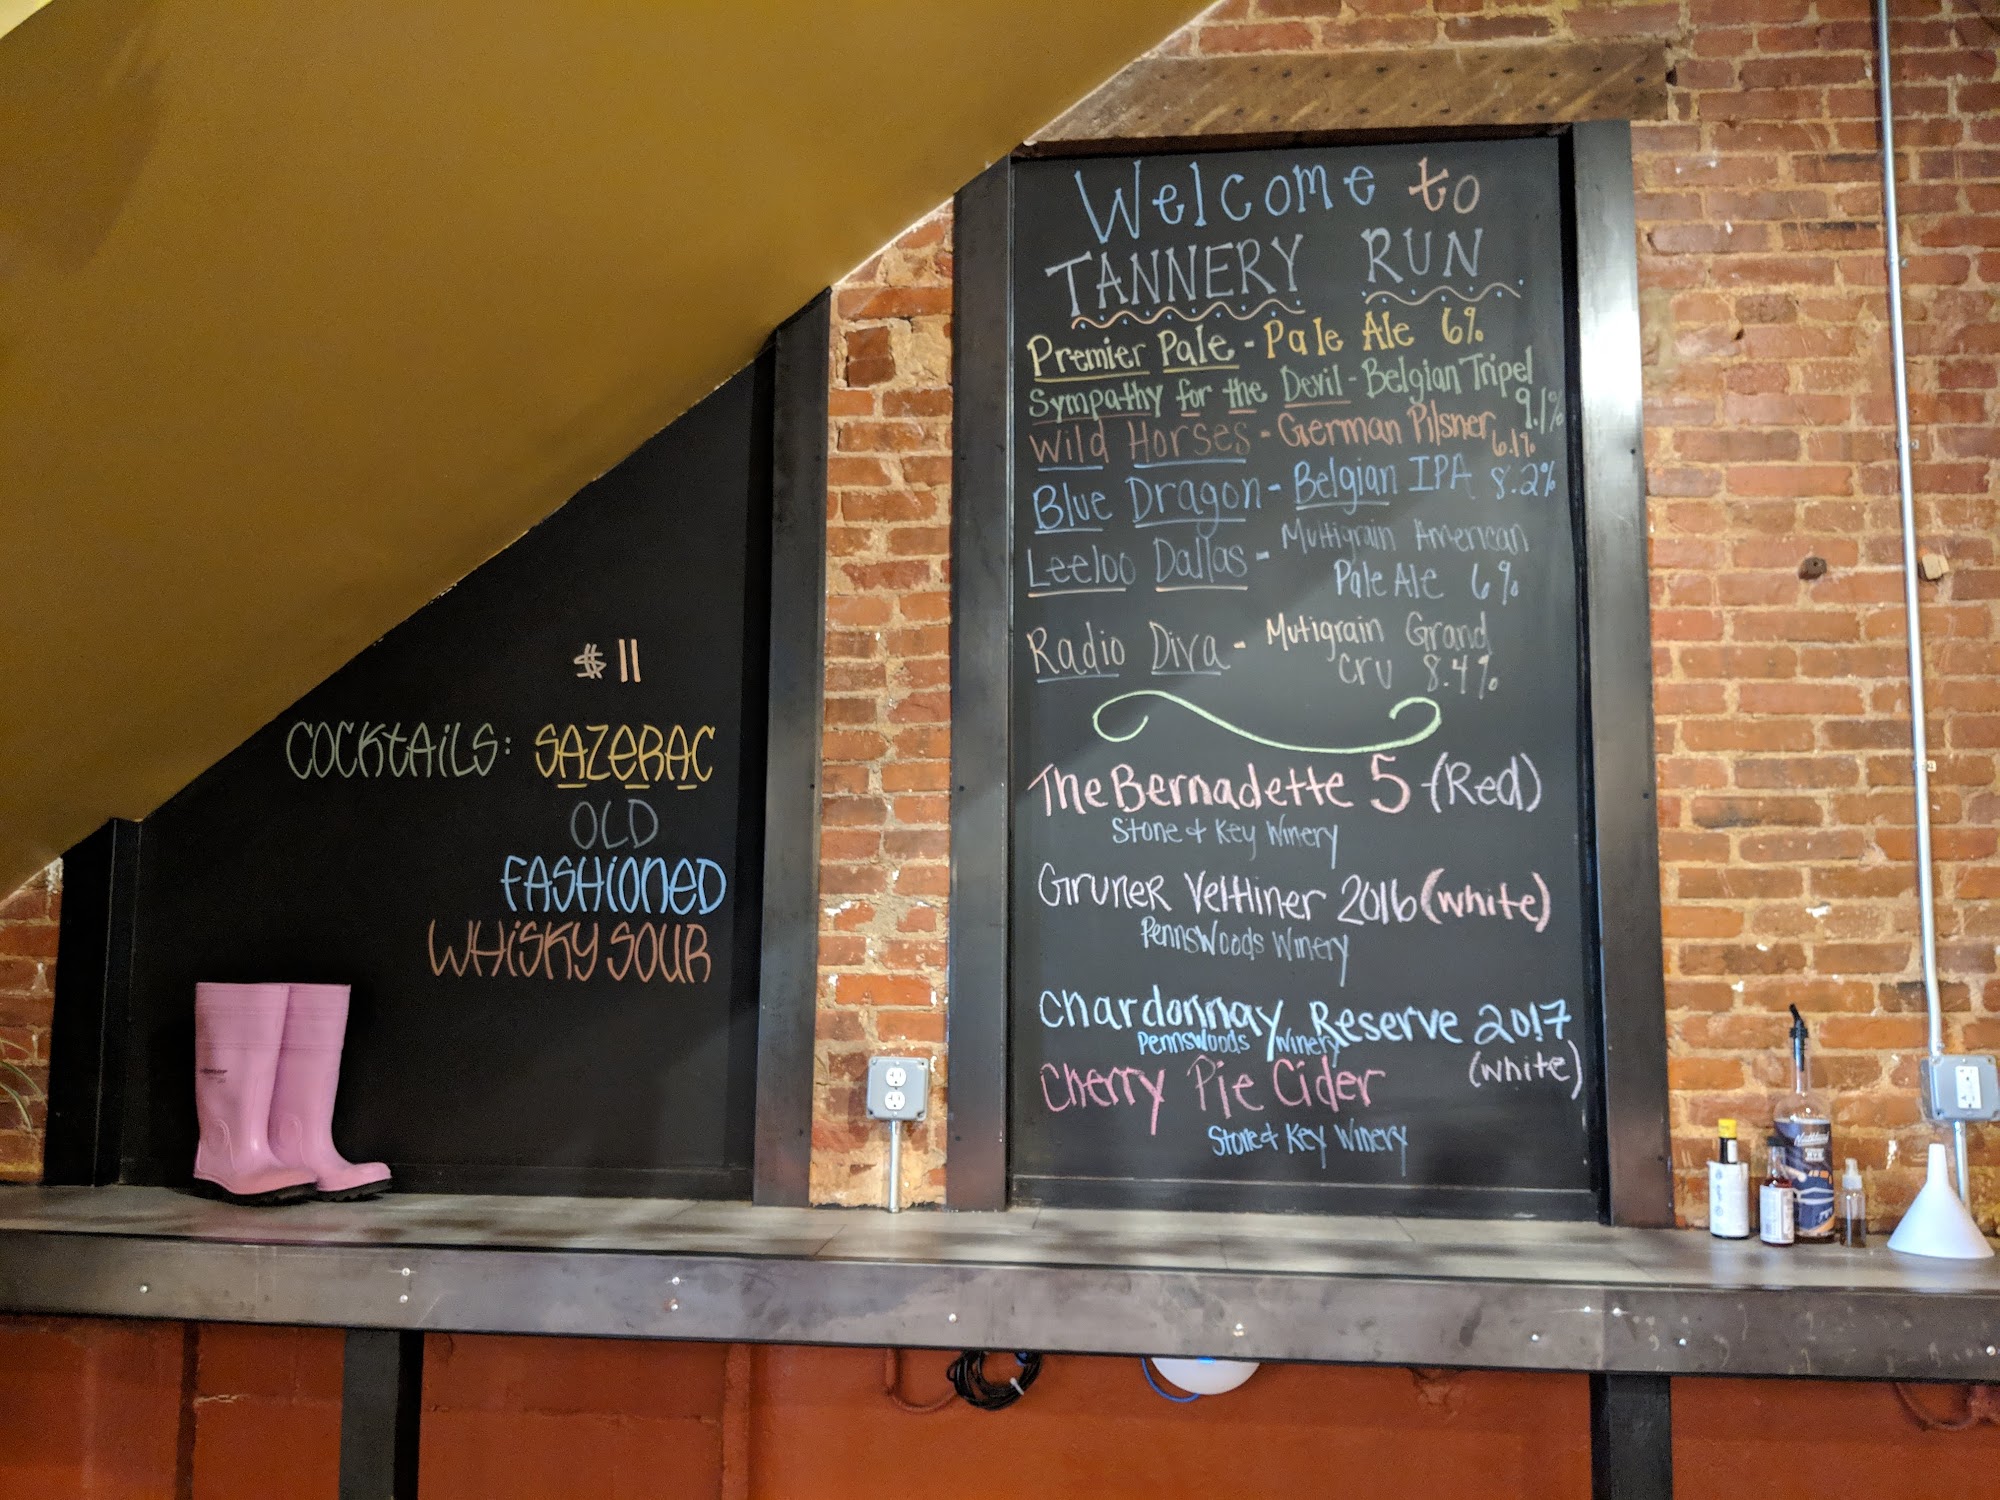 $11
COCKTAILS: SAZERAC
OLD
FASHIONED
WHISKY SOUR
Welcome to
TANNERY RUN
Premier Pale - Pale Ale 6%
Sympathy for the Devil - Belgian Tripel
9.1%
Wild Horses - German Pilsner 6.1%
Blue Dragon - Belgian IPA 8.2%
Leeloo Dallas - Multigrain American
Pale Ale 6%
Radio Diva - Mutigrain Grand
Cru 8.4%
The Bernadette 5 (Red)
Stone & Key Winery
Gruner Veltliner 2016 (white)
Pennswoods Winery
Chardonnay Reserve 2017
Pennswoods Winery
(white)
Cherry Pie Cider
Stone & Key Winery